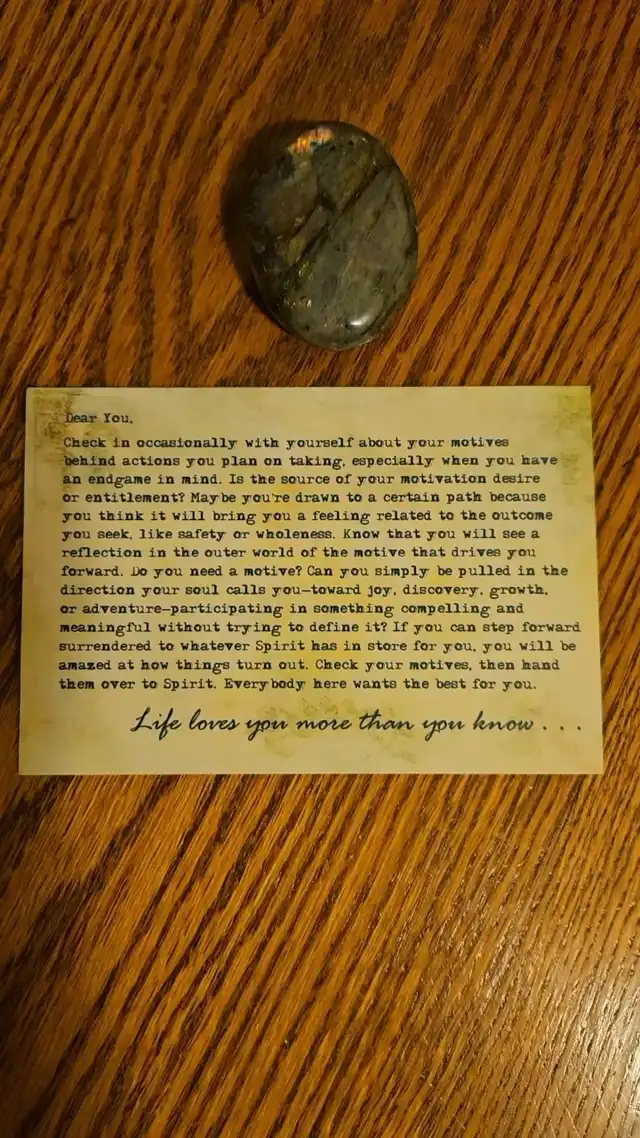 Dear You,
Check in occasionally with yourself about your motives
behind actions you plan on taking, especially when you have
an endgame in mind. Is the source of your motivation desire
or entitlement? Maybe you're drawn to a certain path because
you think it will bring you a feeling related to the outcome
you seek, like safety or wholeness. Know that you will see a
reflection in the outer world of the motive that drives you
forward. Do you need a motive? Can you simply be pulled in the
direction your soul calls you—toward joy, discovery, growth,
or adventure—participating in something compelling and
meaningful without trying to define it? If you can step forward
surrendered to whatever Spirit has in store for you, you will be
amazed at how things turn out. Check your motives, then hand
them over to Spirit. Everybody here wants the best for you.
Life loves you more than you know . . .